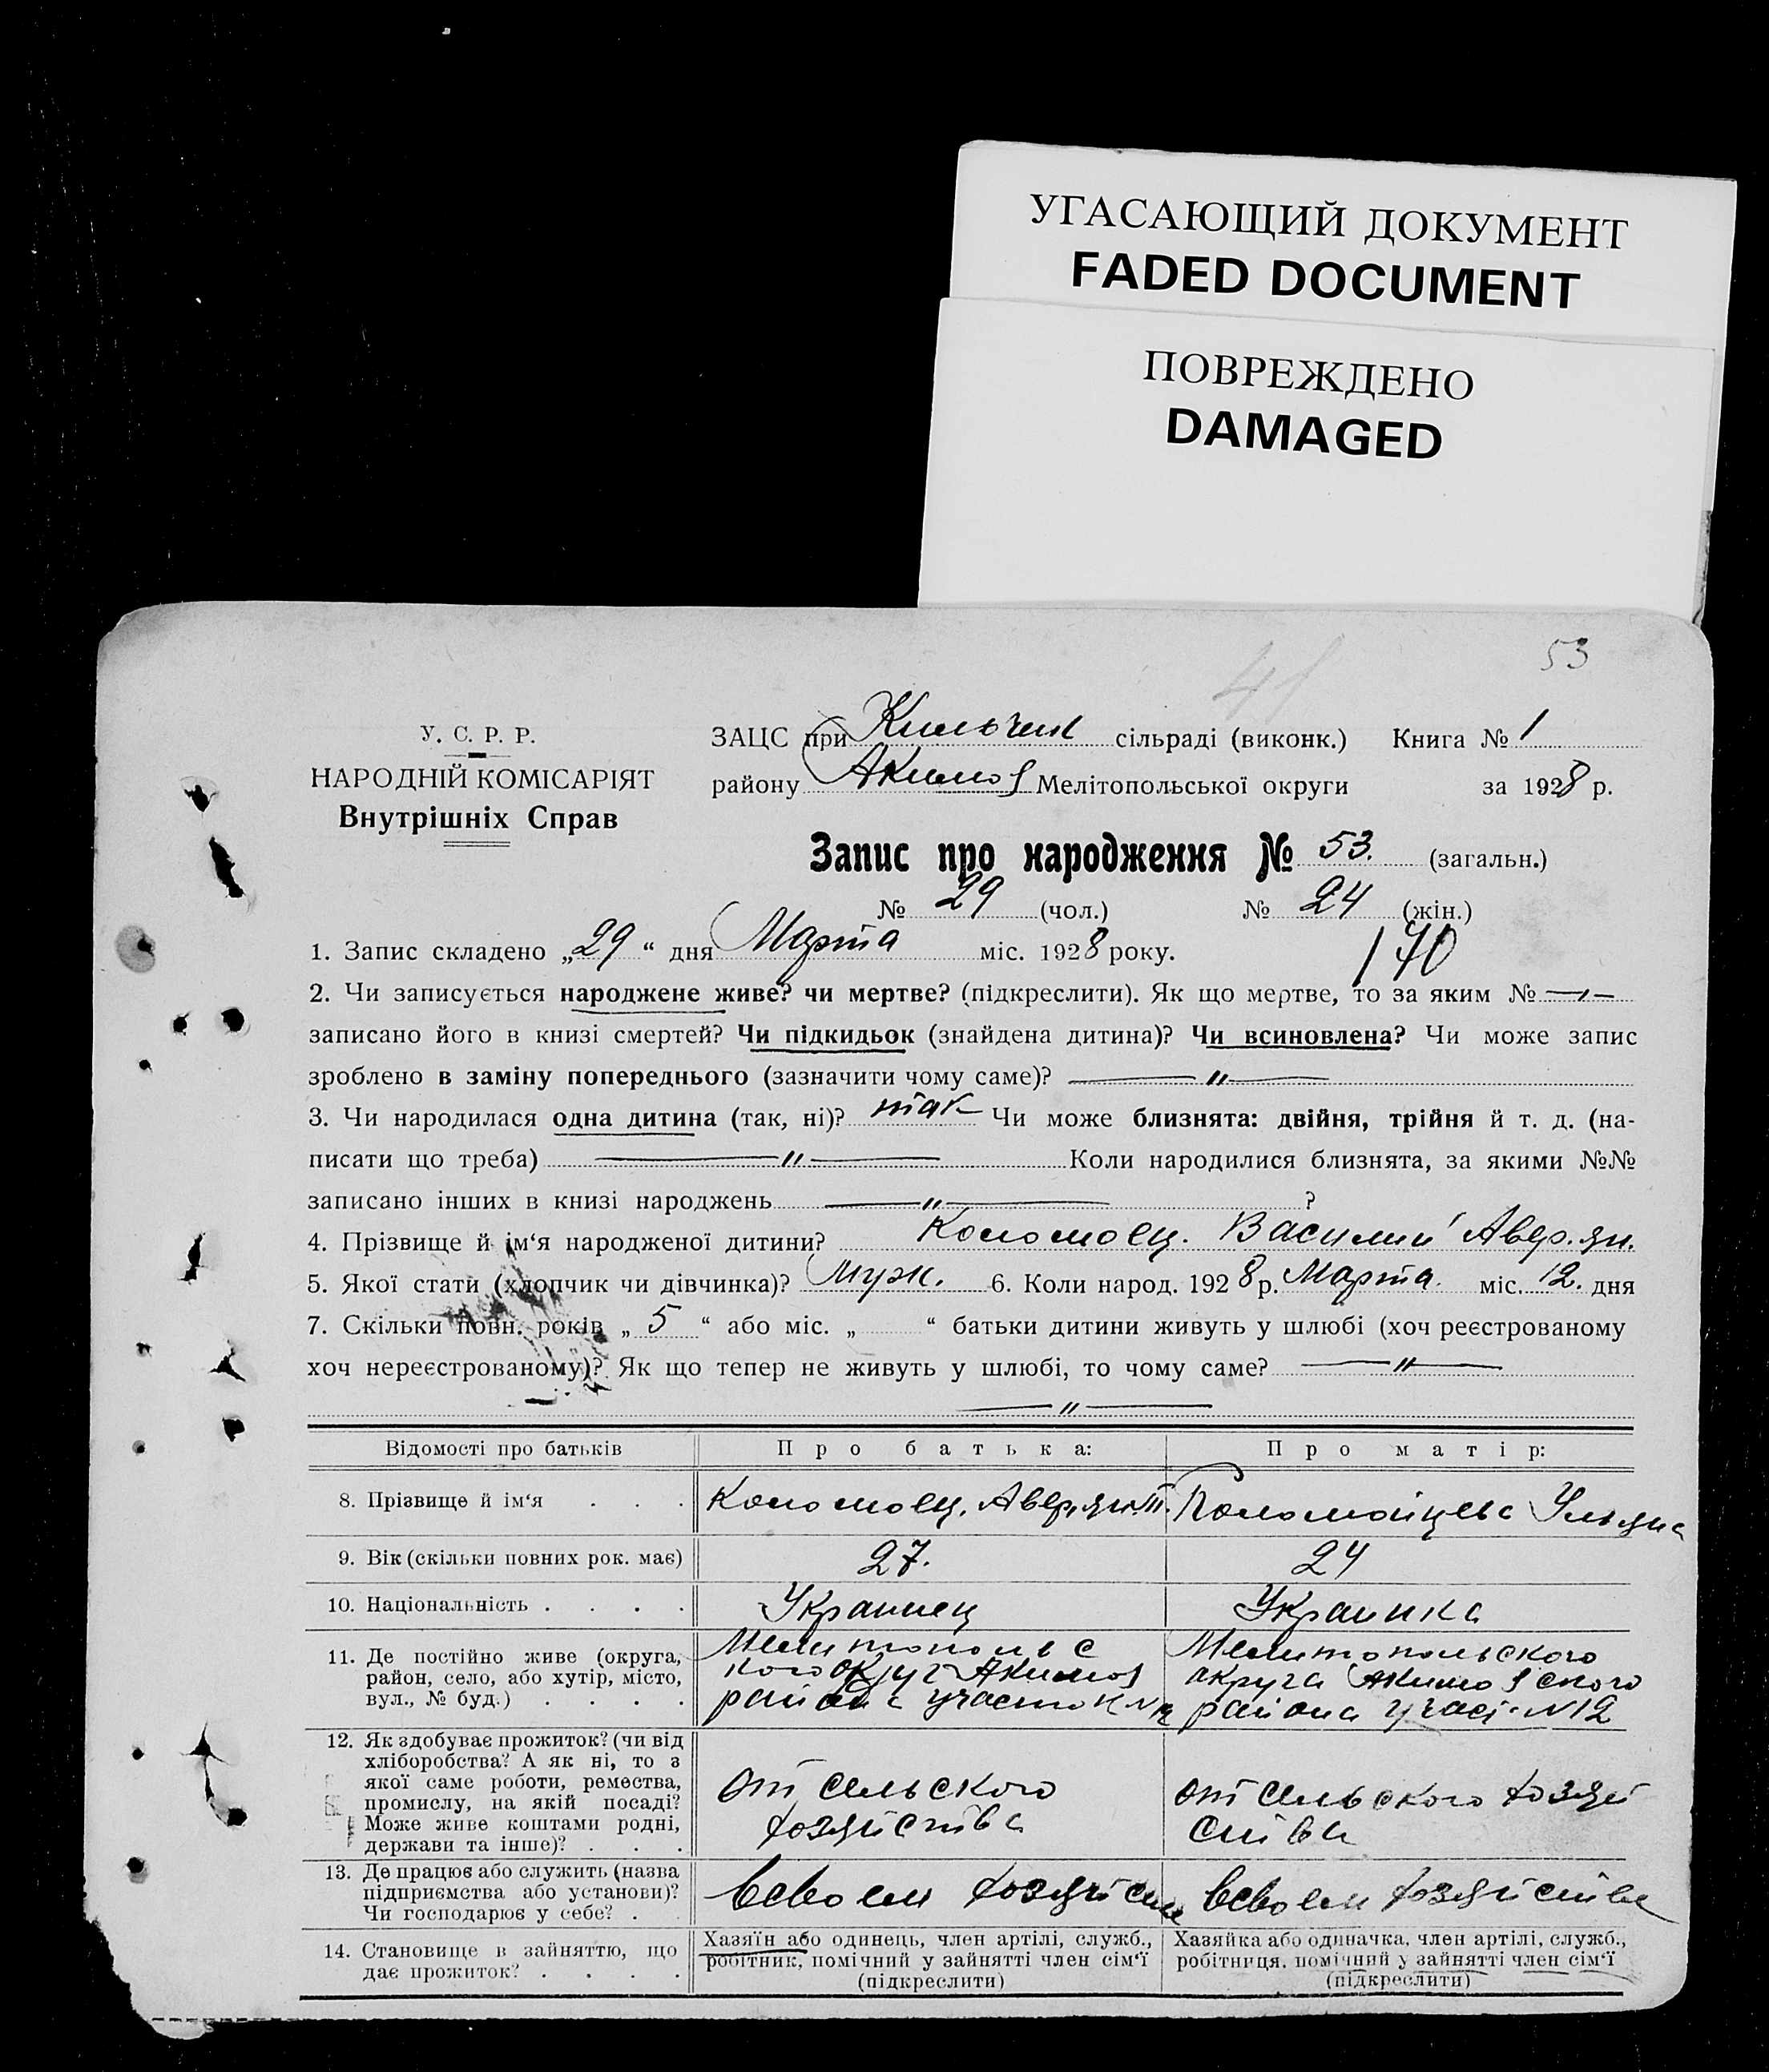 УГАСАЮЩИЙ ДОКУМЕНТ
FADED DOCUMENT
ПОВРЕЖДЕНО
DAMAGED
53
41
У. С. Р. Р.
НАРОДНІЙ КОМІСАРІЯТ
Внутрішніх Справ
ЗАЦС при сільраді (виконк.) Книга № 1
району Акимов Мелітопольської округи за 1928 р.
Запис про народження № 53. (загальн.)
№ 29 (чол.) № 24 (жін.)
1. Запис складено „29“ дня Марта міс. 1928 року.
170
2. Чи записується народжене живе? чи мертве? (підкреслити). Як що мертве, то за яким № —„—
записано його в книзі смертей? Чи підкидьок (знайдена дитина)? Чи всиновлена? Чи може запис
зроблено в заміну попереднього (зазначити чому саме)? —„—
3. Чи народилася одна дитина (так, ні)? так Чи може близнята: двійня, трійня й т. д. (на-
писати що треба) —„— Коли народилися близнята, за якими №№
записано інших в книзі народжень —„— ?
4. Прізвище й ім‘я народженої дитини? Коломоец. Василий Авер.ян.
5. Якої стати (хлопчик чи дівчинка)? Муж. 6. Коли народ. 1928 р. Марта. міс. 12. дня
7. Скільки повн. років „5“ або міс. „ “ батьки дитини живуть у шлюбі (хоч реєстрованому
хоч нереєстрованому)? Як що тепер не живуть у шлюбі, то чому саме? —„—
—„—
Відомості про батьків Про батька: Про матір:
8. Прізвище й ім‘я . . . Коломоец. Авер.ян. Коломойцева Ульяна
9. Вік (скільки повних рок. має) 27. 24
10. Національність . . . . Украинец Украинка
11. Де постійно живе (округа,
район, село, або хутір, місто,
вул., № буд.) . . . .
Мелитопольс
кого округ Акимов
района участок N 12
Мелитопольского
округа Акимовского
района участ. N 12
12. Як здобуває прожиток? (чи від
хліборобства? А як ні, то з
якої саме роботи, ремества,
промислу, на якій посаді?
Може живе коштами родні,
держави та інше)? . . .
от сельского
хозяиства
от сельского хозяи
ства
13. Де працює або служить (назва
підприємства або установи)?
Чи господарює у себе? .
всвоем хозяйстве
всвоем хозяйстве
14. Становище в зайняттю, що
дає прожиток? . . . .
Хазяїн або одинець, член артілі, служб.,
робітник, помічний у зайнятті член сім‘ї
(підкреслити)
Хазяйка або одиначка, член артілі, служб.,
робітниця, помічний у зайнятті член сім‘ї
(підкреслити)